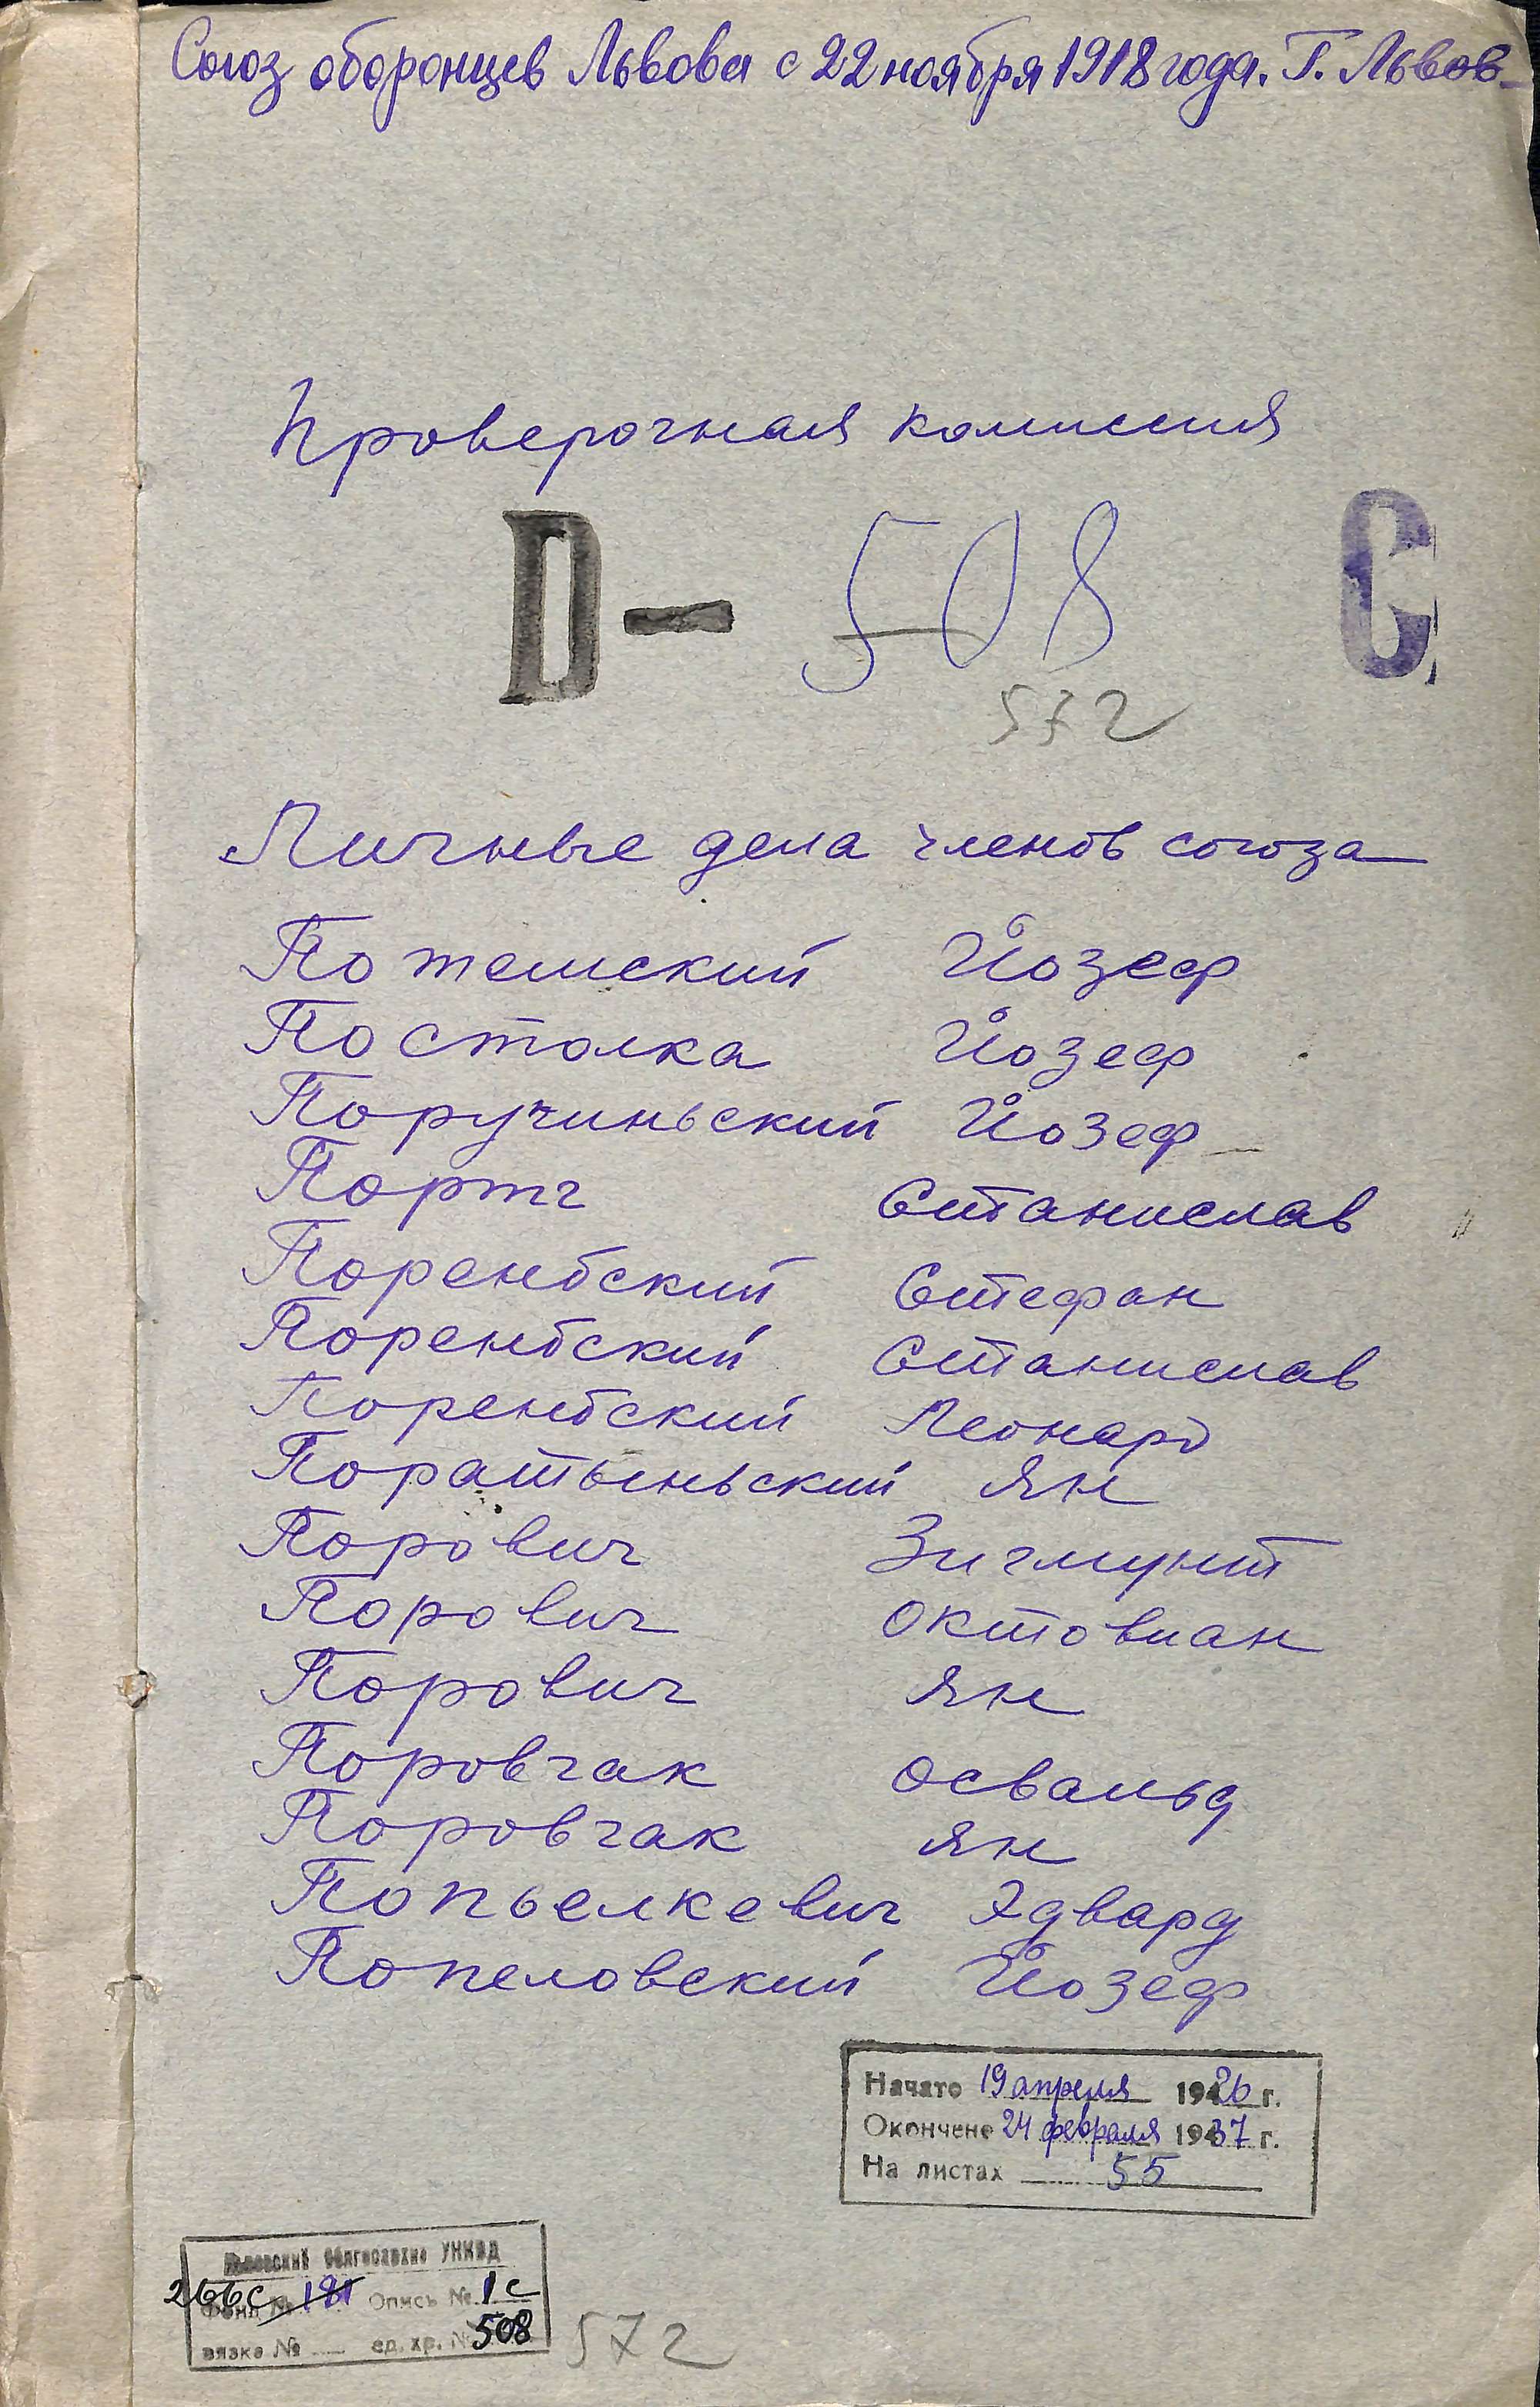 Союз оборонцев Львова с 22 ноября 1918 года. Г. Львов
Проверочная комиссия
D — 508 С
572
Личные дела членов союза
Потемский Йозеф
Постолка Йозеф
Поручиньский Йозеф
Портг Станислав
Порембский Стефан
Порембский Станислав
Порембский Леонард
Поратыньский Ян
Порович Зигмунт
Порович Октовиан
Порович Ян
Поровчак Освальд
Поровчак Ян
Попьелкевич Эдвард
Попеловский Йозеф
Начато 19 апреля 1926 г.
Окончено 24 февраля 1937 г.
На листах 55
Львовский Облгосархив УНКВД
266с Фонд № 181 Опись № 1с
вязка № ед. хр. № 508
572